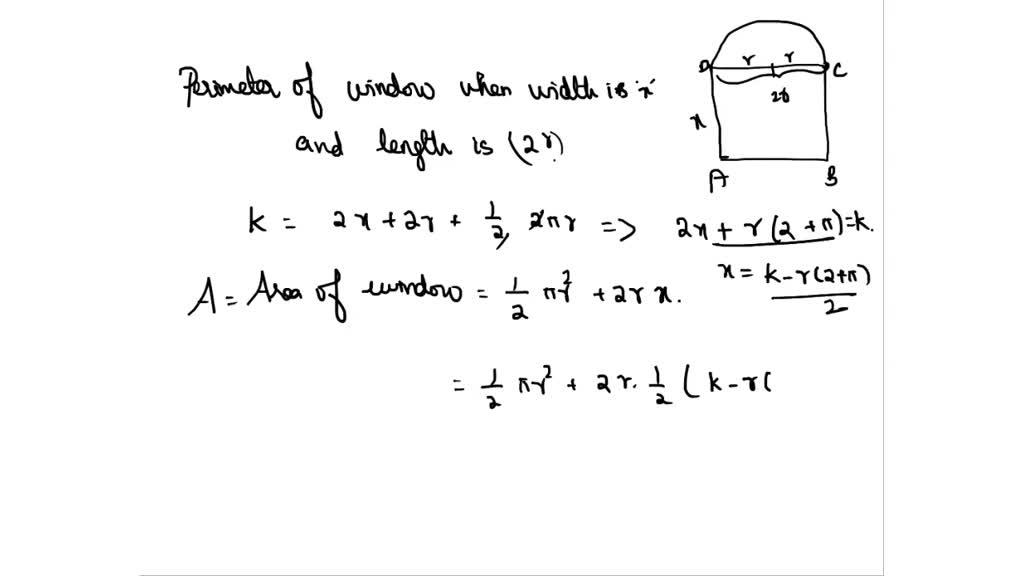 Perimeter of window when width is 'x'
and length is (2r)
k = 2x + 2r + 1/2, 2πr => 2x + r(2+π) = k.
x = k - r(2+π) / 2
A = Area of window = 1/2 πr² + 2r x.
= 1/2 πr² + 2r. 1/2 ( k - r(
D r r C
2r
x
A B